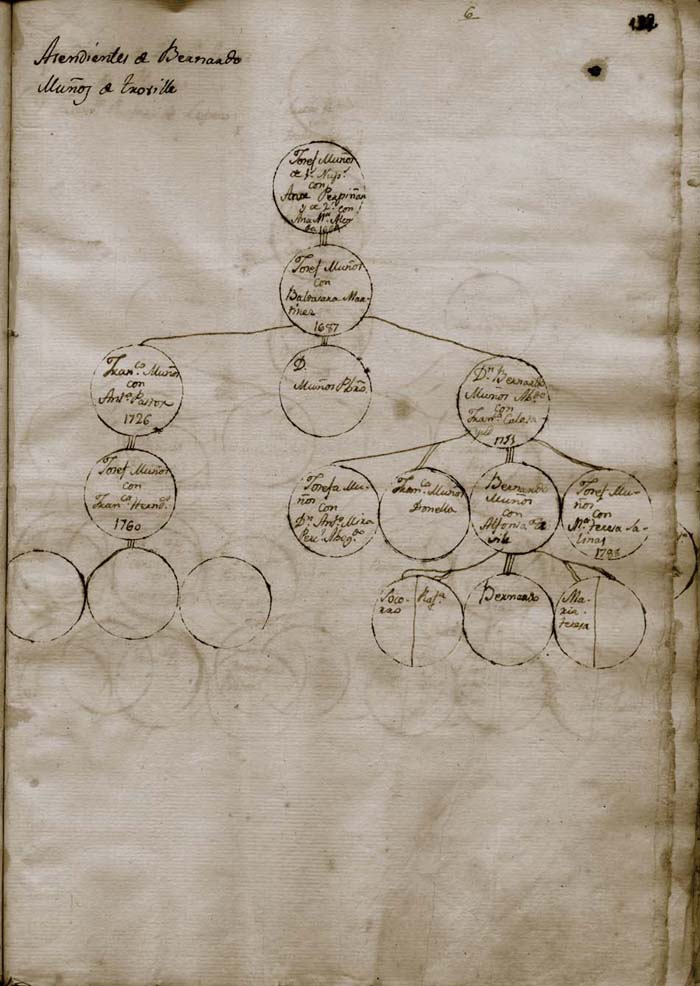 6
132
Asendientes de Bernardo
Muños de troville
Josef Muños
de 1ª Nupª
con
Ana Perpiñan
y de 2ª con
Ana Mª
Josef Muños
con
Baltasara Mar-
tines
1687
Franco Muños
con
Antª Pastor
1726
D.
Muños Pbro.
Dn Bernardo
Muños Abgo
con
Franª Calata
yud
1733
Josef Muños
con
Franca Hernds
1760
Josefa Mu-
ños
con
Dn Anto Mira
Perl Abogdo
Franco Muños
Donella
Bernardo
Muños
con
Alfonsa
Josef Mu-
ños
con
Mª Teresa Sa-
linas
1788
Soco-
rro
Rafª
Bernardo
Ma-
ria
teresa